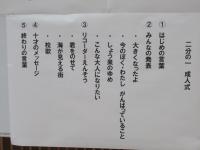 二分の一 成人式
① はじめの言葉
② みんなの発表
・大きくなったよ
・今のぼく・わたし がんばっていること
・しょう来のゆめ
・こんな大人になりたい
③ リコーダーえんそう
・君をのせて
・海が見える街
・校歌
④ 十才のメッセージ
⑤ 終わりの言葉